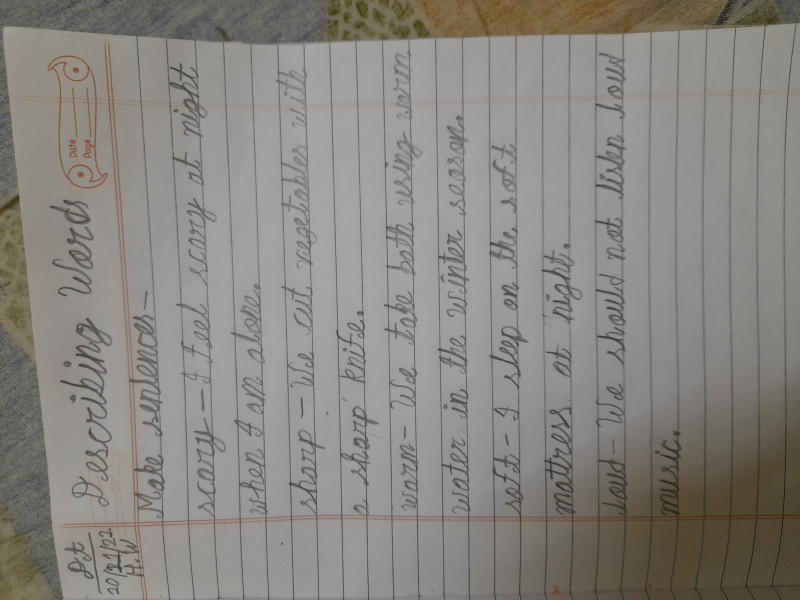 Dt
20/11/22
H.W
Describing Words
Date
Page
Make sentences-
scary - I feel scary at night
when I am alone.
sharp - We cut vegetables with
a sharp knife.
warm - We take bath using warm
water in the winter season.
soft - I sleep on the soft
mattress at night.
loud - We should not listen loud
music.